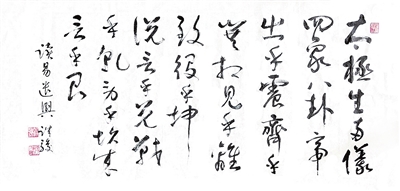 太極生两儀
四象八卦帝
出乎震齊乎
巽相見乎離
致役乎坤
说言乎兑戰
乎乾劳乎坎成
言乎艮
读易遣興